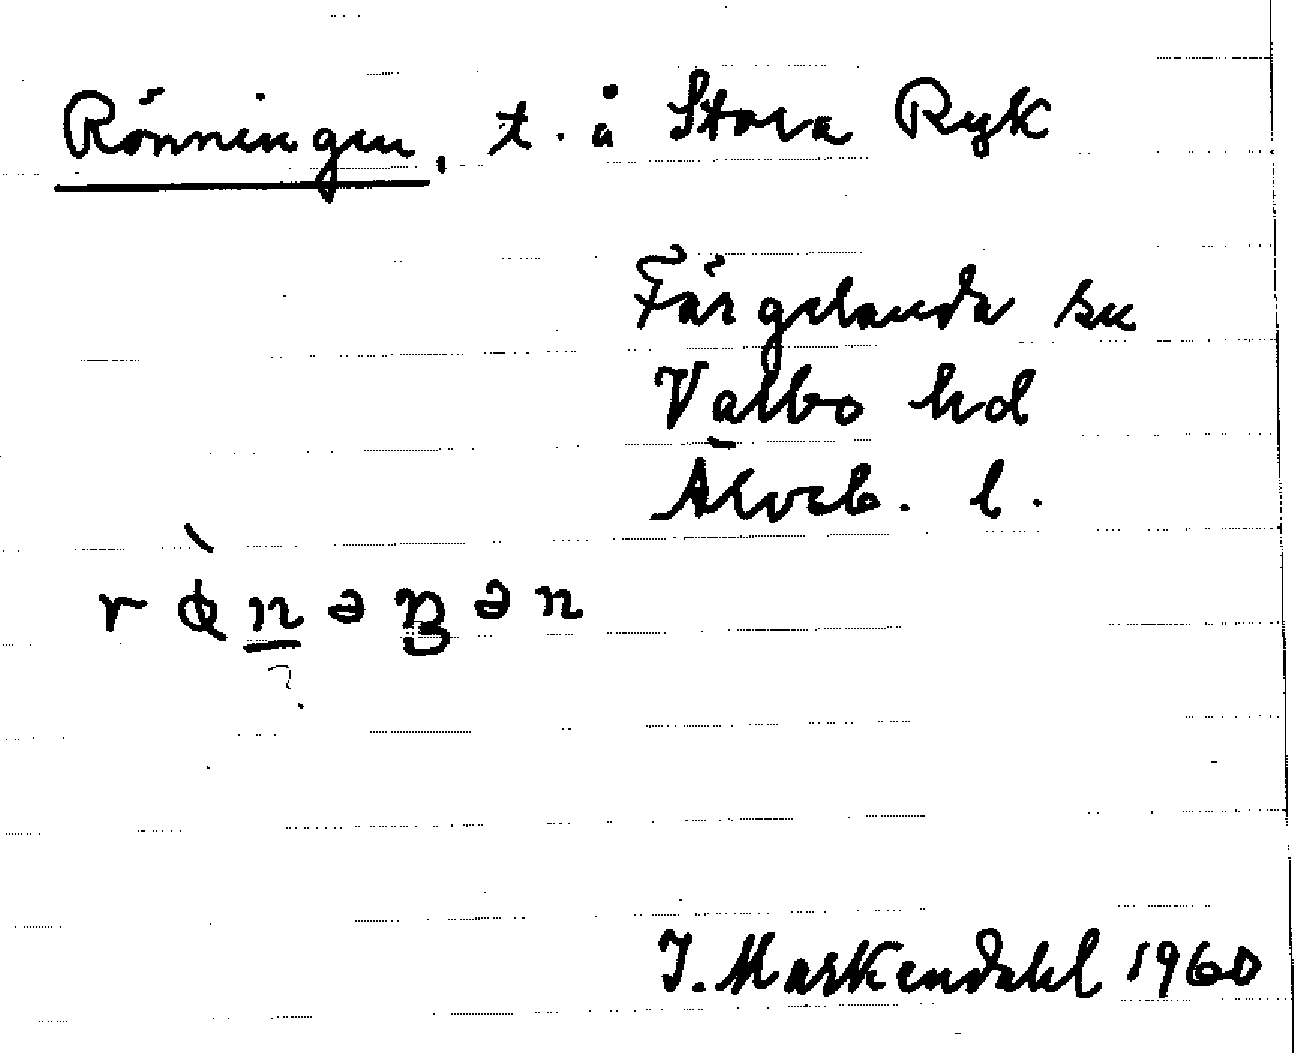 Rönningen, t. å Stora Ryk
Färgelanda sn
Valbo hd
Älvsb. l.
rǿ̀nəŋən
?
I. Markendahl 1960